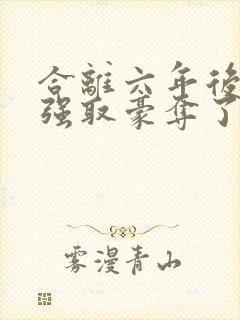 合離六年後
强取豪奪了
雾漫青山